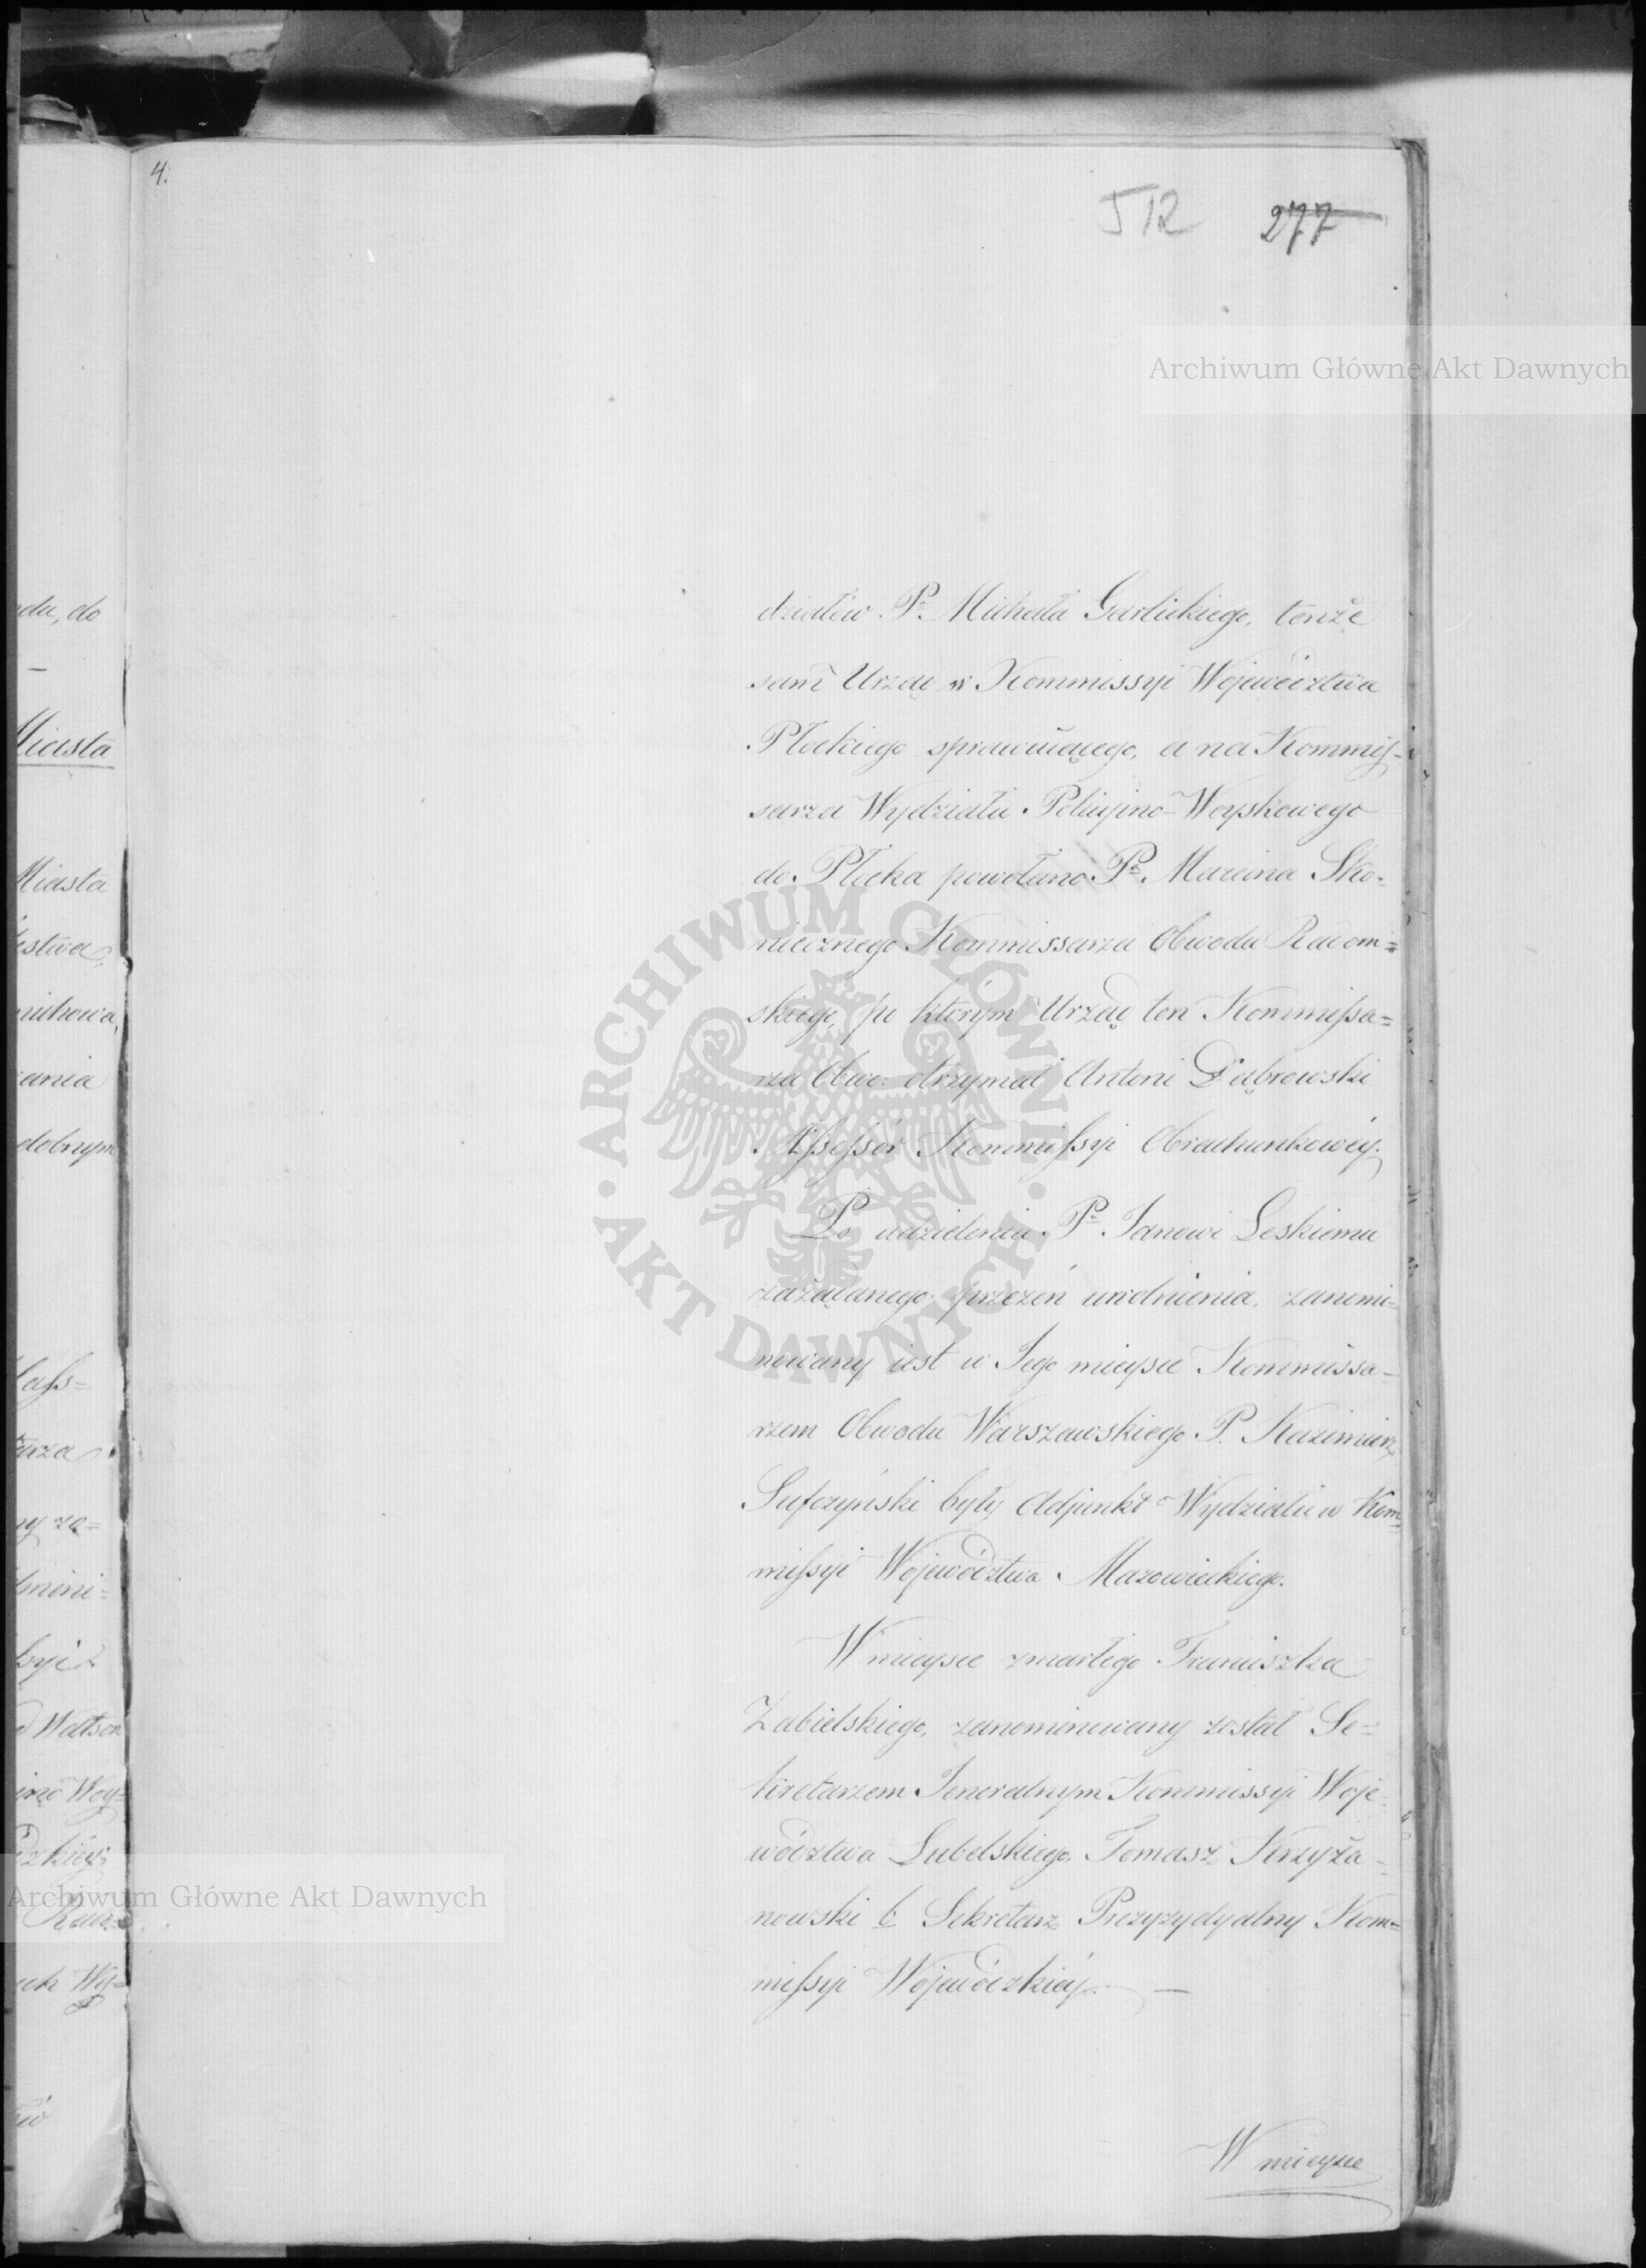 4.
512 277
działów Pa Michała Garlickiego, tenże
sam Urząd w Kommissyi Wojewodztwa
Płockiego sprawuiącego, a na Kommis-
sarza Wydziału Policyjno-Woyskowego
do Płocka powołano Pa Marcina Sko-
niecznego Kommissarza Obwodu Radom=
skiego, po którym Urząd ten Kommissa=
rza Obwo: otrzymał Antoni Dąbrowski
Assessor Kommissyi Obrachunkowéy.
Po udzieleniu Pu Janowi Leskiemu
zażądanego przezeń uwolnienia, zanomi=
nowany iest w Jego mieysce Kommissa-
rzem Obwodu Warszawskiego P. Kazimierz
Sufczyński były Adjunkt Wydziału w Kom=
missyi Województwa Mazowieckiego.
W mieysce zmarłego Franciszka
Zabielskiego, zanominowany został Se=
kretarzem Jeneralnym Kommissyi Woje-
wództwa Lubelskiego, Tomasz Krzyża-
nowski b Sekretarz Prezyzydyalny Kom=
missyi Wojewódzkiéy. —
W mieysce
du, do
—
Miasta
Miasta
ania
dobnym
ny za=
mini=
Watson
Archiwum Główne Akt Dawnych
ARCHIWUM GŁÓWNE AKT DAWNYCH
Archiwum Główne Akt Dawnych